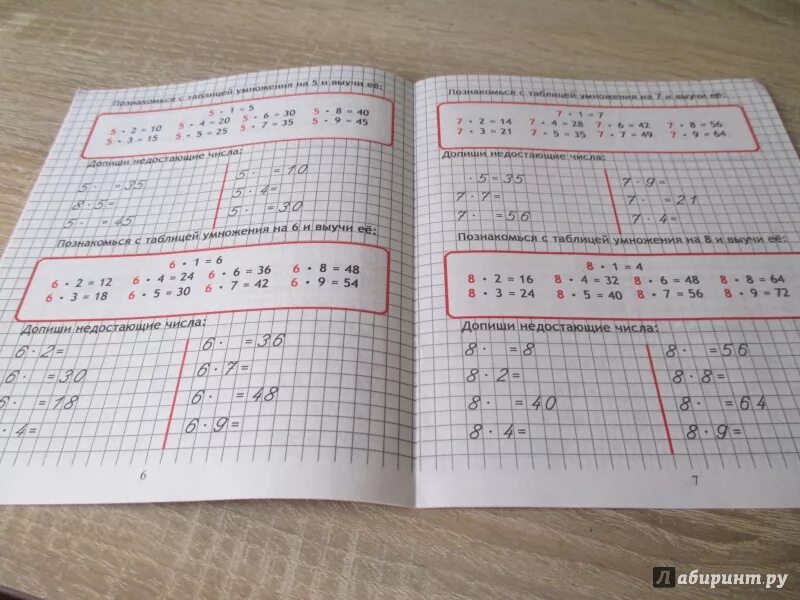 Познакомься с таблицей умножения на 5 и выучи её:
5 · 1 = 5
5 · 2 = 10 5 · 4 = 20 5 · 6 = 30 5 · 8 = 40
5 · 3 = 15 5 · 5 = 25 5 · 7 = 35 5 · 9 = 45
Допиши недостающие числа:
5 · = 35 5 · = 10
8 · 5 = 5 · 4 =
5 · = 45 5 · = 30
Познакомься с таблицей умножения на 6 и выучи её:
6 · 1 = 6
6 · 2 = 12 6 · 4 = 24 6 · 6 = 36 6 · 8 = 48
6 · 3 = 18 6 · 5 = 30 6 · 7 = 42 6 · 9 = 54
Допиши недостающие числа:
6 · 2 = 6 · = 36
6 · = 30 6 · 7 =
6 · = 18 6 · = 48
· 4 = 6 · 9 =
6
Познакомься с таблицей умножения на 7 и выучи её:
7 · 1 = 7
7 · 2 = 14 7 · 4 = 28 7 · 6 = 42 7 · 8 = 56
7 · 3 = 21 7 · 5 = 35 7 · 7 = 49 7 · 9 = 64
Допиши недостающие числа:
· 5 = 35 7 · 9 =
7 · 7 = 7 · = 21
7 · = 56 7 · 4 =
Познакомься с таблицей умножения на 8 и выучи её:
8 · 1 = 4
8 · 2 = 16 8 · 4 = 32 8 · 6 = 48 8 · 8 = 64
8 · 3 = 24 8 · 5 = 40 8 · 7 = 56 8 · 9 = 72
Допиши недостающие числа:
8 · = 8 8 · = 56
8 · 2 = 8 · 8 =
8 · = 40 8 · = 64
8 · 4 = 8 · 9 =
7
Лабиринт.ру